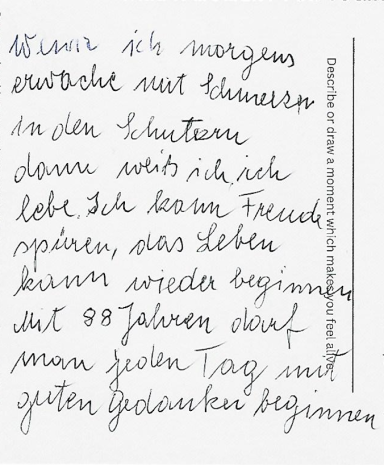 Wenn ich morgens
erwache mit Schmerzen
in den Schultern
dann weiß ich, ich
lebe. Ich kann Freude
spüren, das Leben
kann wieder beginnen
Mit 88 Jahren darf
man jeden Tag mit
guten Gedanken beginnen
Describe or draw a moment which makes you feel alive.